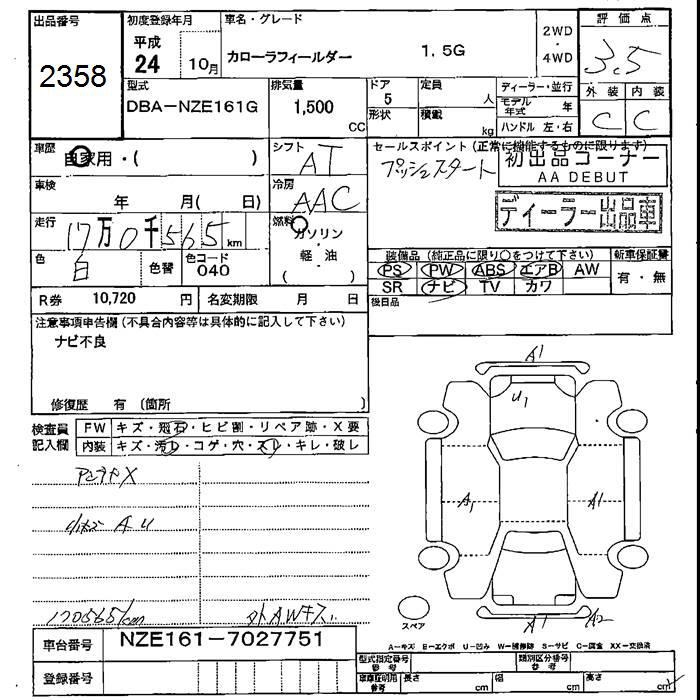 出品番号
2358
初度登録年月
平成
24
10月
車名・グレード
カローラフィールダー
1.5G
2WD
・
4WD
評価点
3.5
外装 内装
C C
型式
DBA-NZE161G
排気量
1,500
CC
ドア
5
形状
定員
人
積載
kg
ディーラー・並行
モデル年式
年
ハンドル 左・右
車歴
自家用・( )
シフト
AT
セールスポイント(正常に機能するものに限ります)
プッシュスタート
初出品コーナー
AA DEBUT
ディーラー出品車
車検
年 月( 日)
冷房
AAC
走行
17万0千565 km
燃料
ガソリン
・
軽・油
( )
色
白
色替
色コード
040
装備品(純正品に限り○をつけて下さい)
PS PW ABS エアB AW
SR ナビ TV カワ
新車保証書
有・無
R券 10,720 円
名変期限 月 日
後日品
注意事項申告欄(不具合内容等は具体的に記入して下さい)
ナビ不良
修復歴 有 (箇所 )
検査員
記入欄
FW キズ・飛石・ヒビ割・リペア跡・X要
内装 キズ・汚レ・コゲ・穴・スレ・キレ・破レ
A1
U1
A1
A1
A1
A2
小キズ AU
170565km
外AWキズ
スペア
A-キズ E-エクボ U-凹み W-補修跡 S-サビ C-腐食 XX-交換済
車台番号
NZE161-7027751
登録番号
型式指定番号
参考
類別区分番号
参考
車庫証明用
参考
長さ
cm
幅
cm
高さ
cm